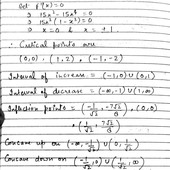 Let f'(x)=0
⇒ 15x² - 15x⁴ = 0
⇒ 15x² (1-x²) = 0
⇒ x=0 & x = ±1.
∴ Critical points are
(0,0), (1,2), (-1,-2)
Interval of increase = (-1,0)∪(0,1)
Interval of decrease = (-∞,-1)∪(1,∞)
Inflection points = (-1/√2, -7√2/8), (0,0)
(1/√2, 7√2/8)
Concave up on (-∞,-1/√2)∪(0,1/√2)
Concave down on (-1/√2,0)∪(1/√2,∞)